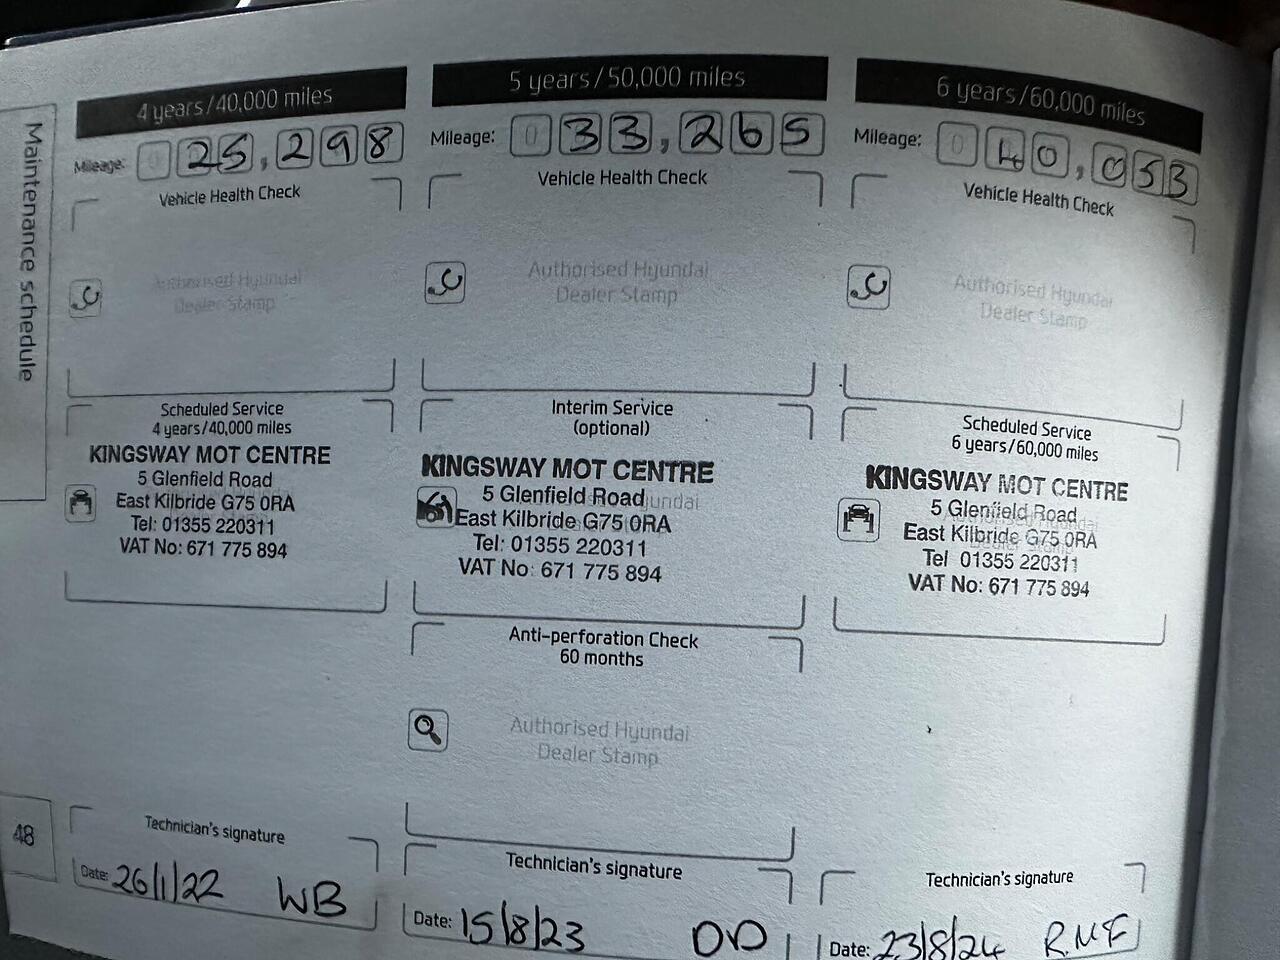 Maintenance schedule
48
4 years/40,000 miles
Mileage: 0 25,298
Vehicle Health Check
Authorised Hyundai
Dealer Stamp
Scheduled Service
4 years/40,000 miles
KINGSWAY MOT CENTRE
5 Glenfield Road
East Kilbride G75 0RA
Tel: 01355 220311
VAT No: 671 775 894
Technician's signature
Date: 26/1/22 WB
5 years/50,000 miles
Mileage: 0 33,265
Vehicle Health Check
Authorised Hyundai
Dealer Stamp
Interim Service
(optional)
KINGSWAY MOT CENTRE
5 Glenfield Road Hyundai
East Kilbride G75 0RA
Tel: 01355 220311
VAT No: 671 775 894
Anti-perforation Check
60 months
Authorised Hyundai
Dealer Stamp
Technician's signature
Date: 15/8/23 DD
6 years/60,000 miles
Mileage: 0 40,053
Vehicle Health Check
Authorised Hyundai
Dealer Stamp
Scheduled Service
6 years/60,000 miles
KINGSWAY MOT CENTRE
5 Glenfield Road
East Kilbride G75 0RA
Tel 01355 220311
VAT No: 671 775 894
Technician's signature
Date: 23/8/24